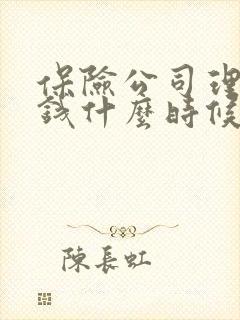 保險公司理
錢什麼時候
陳長虹